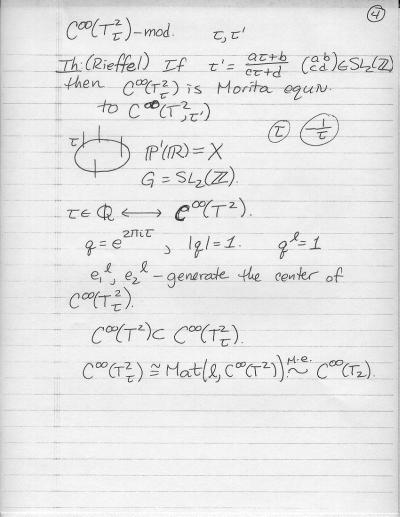 ④
C^∞(T²_τ)-mod. τ, τ'
Th: (Rieffel) If τ' = (aτ+b)/(cτ+d) (a b c d) ∈ SL₂(ℤ)
then C^∞(T²_τ) is Morita equiv.
to C^∞(T²,τ')
τ -1/τ
τ ℙ'(ℝ) = X
G = SL₂(ℤ).
τ ∈ ℚ ⟷ C^∞(T²).
q = e^{2πiτ}, |q| = 1. q^ℓ = 1
e₁^ℓ, e₂^ℓ - generate the center of
C^∞(T²_τ).
C^∞(T²) ⊂ C^∞(T²_τ).
C^∞(T²_τ) ≅ Mat(ℓ, C^∞(T²)) ~^{M.e.} C^∞(T₂).